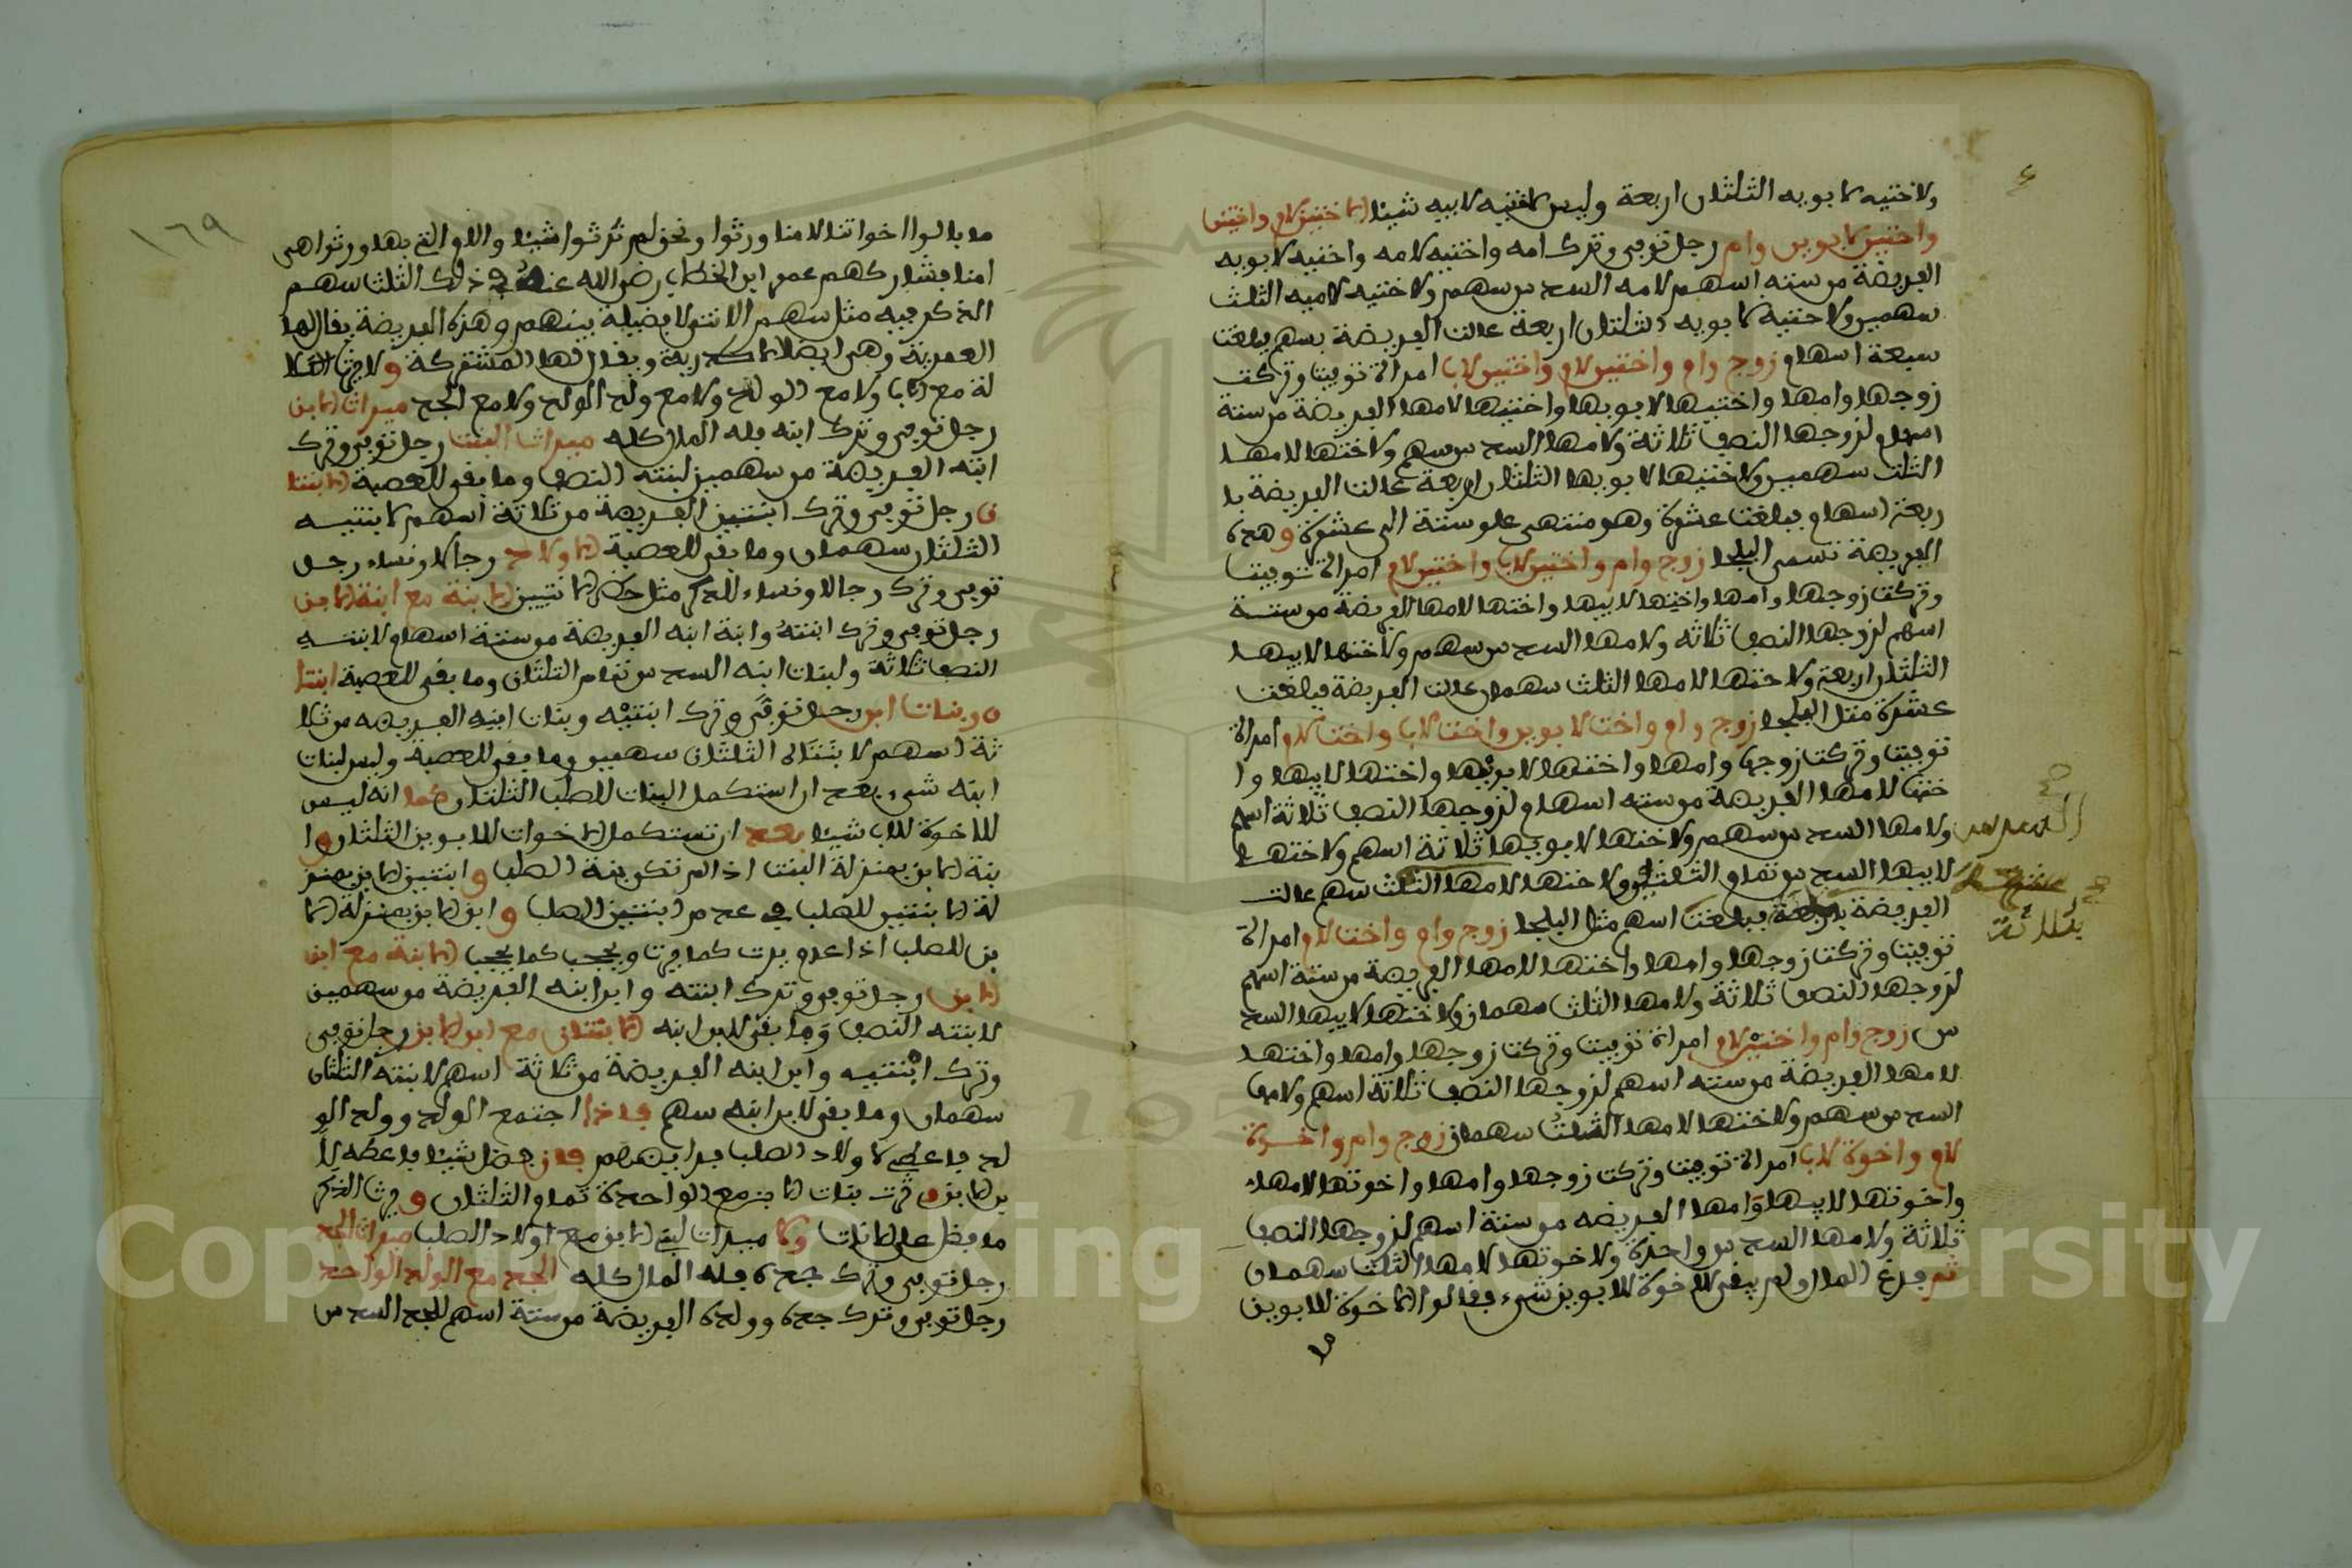 ولاختيه لابويه الثلثان اربعة وليس لاختيه لابيه شيئا الاختين لام واختين
واختين لابوين وام رجل توفى وترك امه واختيه لامه واختيه لابويه
الفريضة من ستة اسهم لامه السدس سهم ولاختيه لاميه الثلث
سهمين ولاختيه لابويه الثلثان اربعة عالت الفريضة بسهم فبلغت
سبعة اسهام زوج وام واختين لام واختين لاب امراة توفيت وتركت
زوجها وامها واختيها لابويها واختيها لامها الفريضة من ستة
اسهام لزوجها النصف ثلاثة ولامها السدس سهم ولاختها لامها
الثلث سهمين ولاختيها لابويها الثلثان اربعة عالت الفريضة با
ربعة اسهام فبلغت عشرة وهو منتهى علو ستة الى عشرة وهذه
الفريضة تسمى البلجا زوج وام واختين لاب واختين لام امراة توفيت
وتركت زوجها وامها واختها لابيها واختها لامها الفريضة من ستة
اسهم لزوجها النصف ثلاثة ولامها السدس سهم ولاختها لابيها
الثلثان اربعة ولاختها لامها الثلث سهمان عالت الفريضة فبلغت
عشرة مثل البلجا زوج وام واخت لابوين واخت لاب واخت لام امراة
توفيت وتركت زوجها وامها واختها لابويها واختها لابيها وا
ختها لامها الفريضة من ستة اسهام لزوجها النصف ثلاثة اسهم
ولامها السدس سهم ولاختها لابويها ثلاثة اسهم ولاختها
لابيها السدس تمام الثلثين ولاختها لامها الثلث سهم عالت
الفريضة فبلغت اسهم مثل البلجا زوج وام واخت لام امراة
توفيت وتركت زوجها وامها واختها لامها الفريضة من ستة اسهم
لزوجها النصف ثلاثة ولامها الثلث سهمان ولاختها لابيها السد
س زوج وام واختين لام امراة توفيت وتركت زوجها وامها واختها
لامها الفريضة من ستة اسهم لزوجها النصف ثلاثة اسهم ولامها
السدس سهم ولاختها لامها الثلث سهمان زوج وام واخوة
لام واخوة لاب امراة توفيت وتركت زوجها وامها واخوتها لامها
واخوتها لابيها وامها الفريضة من ستة اسهم لزوجها النصف
ثلاثة ولامها السدس واحدة ولاخوتها لامها الثلث سهمان
ثم فرغ المال ولم يبقى للاخوة للابوين شيء فقالوا الاخوة للابوين
السدس
بثلاثة
١٦٩
ما بالوا اخواتنا لامنا ورثوا ونحن لم نرثوا شيئا والام التي بها ورثوا هي
امنا فشاركهم عمر ابن الخطاب رضي الله عنه في ذلك الثلث سهم
الذكر فيه مثل سهم الانثى لا فضيلة بينهم وهذه الفريضة يقال لها
العمرية وهي ايضا الاكدرية ويقال لها المشتركة ولا يرث الكلا
لة مع الاب ولا مع الولد ولا مع ولد الولد ولا مع الجد ميراث الابن
رجل توفى وترك ابنه فله المال كله ميراث البنت رجل توفى وترك
ابنته الفريضة من سهمين لبنته النصف وما بقى للعصبة الابنتا
ن رجل توفى وترك ابنتين الفريضة من ثلاثة اسهم لابنتيه
الثلثان سهمان وما بقى للعصبة الاولاد رجالا ونساء رجل
توفى وترك رجالا ونساء للذكر مثل حظ الانثيين الابنة مع ابنة الابن
رجل توفى وترك ابنته وابنة ابنه الفريضة من ستة اسهام ولابنته
النصف ثلاثة ولبنات ابنه السدس تمام الثلثان وما بقى للعصبة ابنتا
ن وبنات ابن رجل توفى وترك ابنتيه وبنات ابنه الفريضة من ثلا
ثة اسهم لابنتاه الثلثان سهمين وما بقى للعصبة وليس لبنات
ابنه شيء بعد ان استكمل البنات للصلب الثلثان كما انه ليس
للاخوة للاب شيئا بعد ان تستكمل الاخوات للابوين الثلثان وا
بنة الابن بمنزلة البنت اذا لم تكن بنة الصلب وابنتين الابن بمنز
لة الابنتين للصلب في عدم ابنتين الصلب وابن الابن بمنزلة الا
بن للصلب اذا عدم يرث كما يرث ويحجب كما يحجب الابنة مع ابن
الابن رجل توفى وترك ابنته وابن ابنه الفريضة من سهمين
لابنته النصف وما بقى لابن ابنه الابنتان مع ابن الابن رجل توفى
وترك ابنتيه وابن ابنه الفريضة من ثلاثة اسهم لابنته الثلثان
سهمان وما بقى لابن ابنه سهم فاذا اجتمع الولد وولد الو
لد فاعطى لاولاد الصلب فرايضهم فان فضل شيئا فاعطه لا
بن الابن وترث بنات الابن مع الواحدة تمام الثلثان ويرث الذكر
ما فضل على الاناث وكا ميراث لبني الابن مع اولاد الصلب ميراث الجد
رجل توفى وترك جده فله المال كله الجد مع الولد الواحد
رجل توفى وترك جده وولده الفريضة من ستة اسهم للجد السدس
Copyright © King Saud University
195